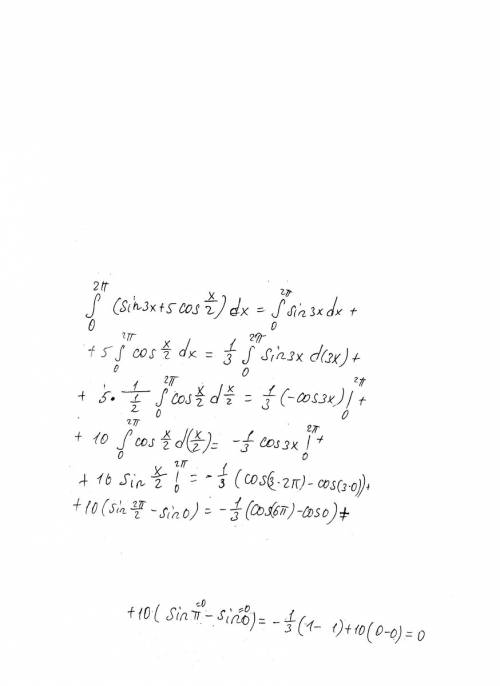 ∫₀^{2π} (sin3x+5 cos x/2) dx = ∫₀^{2π} sin3x dx +
+ 5 ∫₀^{2π} cos x/2 dx = 1/3 ∫₀^{2π} sin3x d(3x) +
+ 5 · 1/(1/2) ∫₀^{2π} cos x/2 d x/2 = 1/3 (-cos3x) |₀^{2π} +
+ 10 ∫₀^{2π} cos x/2 d(x/2) = -1/3 cos3x |₀^{2π} +
+ 10 sin x/2 |₀^{2π} = -1/3 (cos(3·2π) - cos(3·0)) +
+10 (sin 2π/2 - sin0) = -1/3 (cos(6π) - cos0) +
+10 ( sin π⁼⁰ - sin 0⁼⁰) = -1/3 (1 - 1) + 10 (0-0) = 0